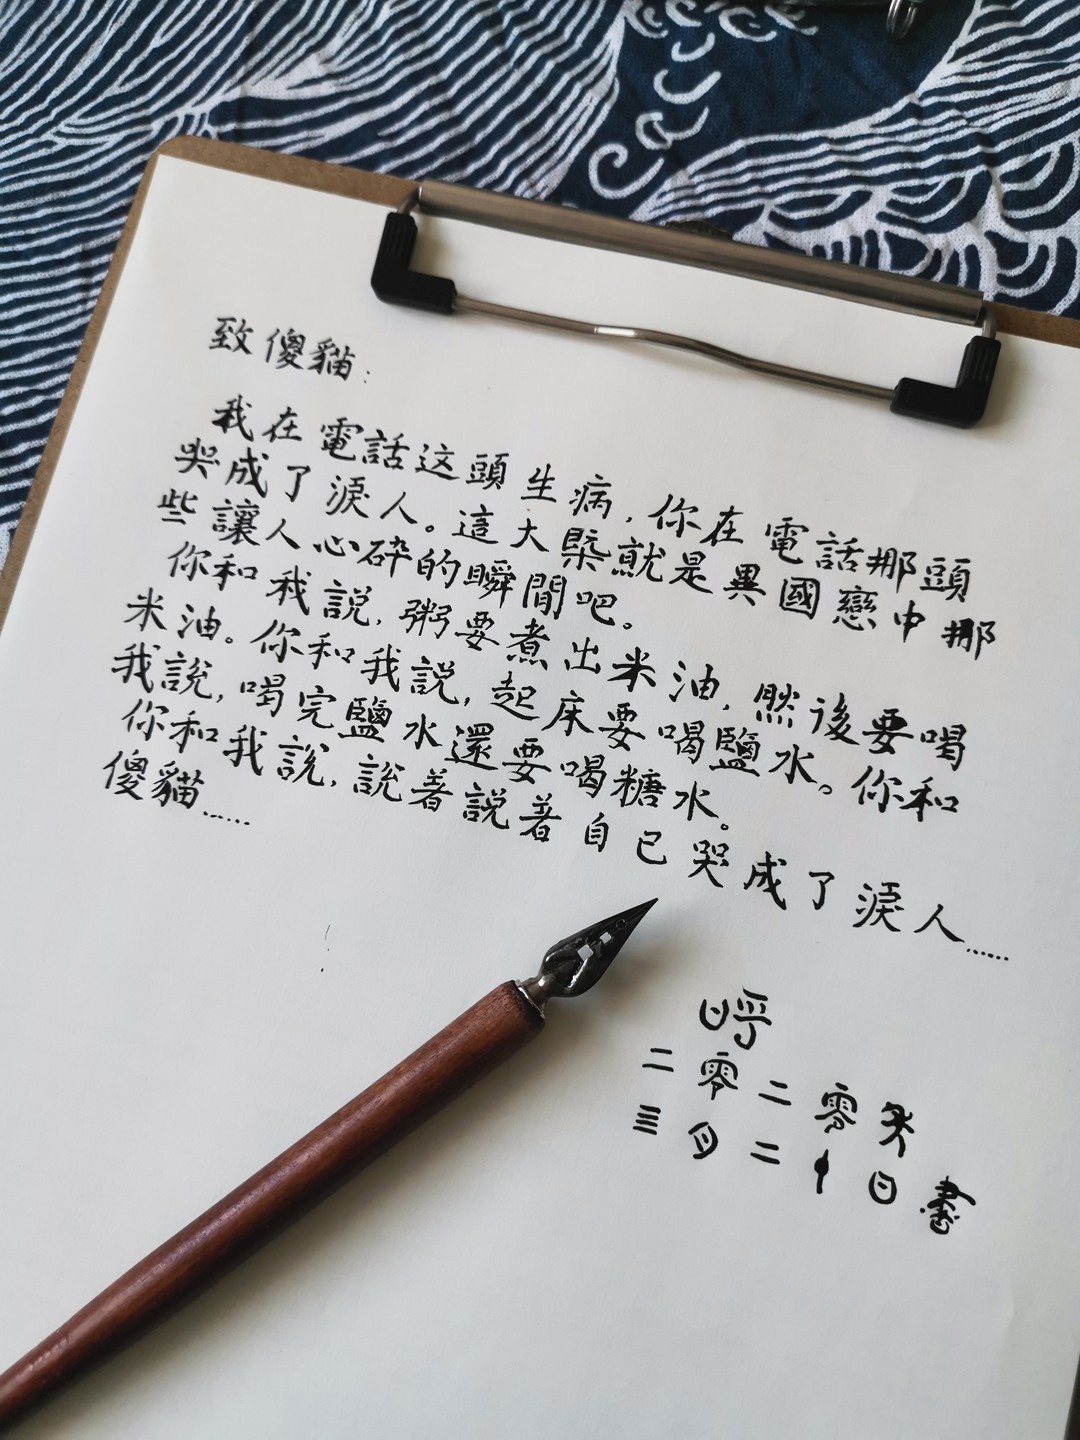 致傻貓：
我在電話这頭生病，你在電話挪頭
哭成了淚人。這大槩就是異國戀中挪
些讓人心碎的瞬間吧。
你和我説，粥要煮出米油，然後要喝
米油。你和我説，起床要喝鹽水。你和
我説，喝完鹽水還要喝糖水。
你和我説，説着説着自己哭成了淚人……
傻貓……
二零二零年
三月二十日書